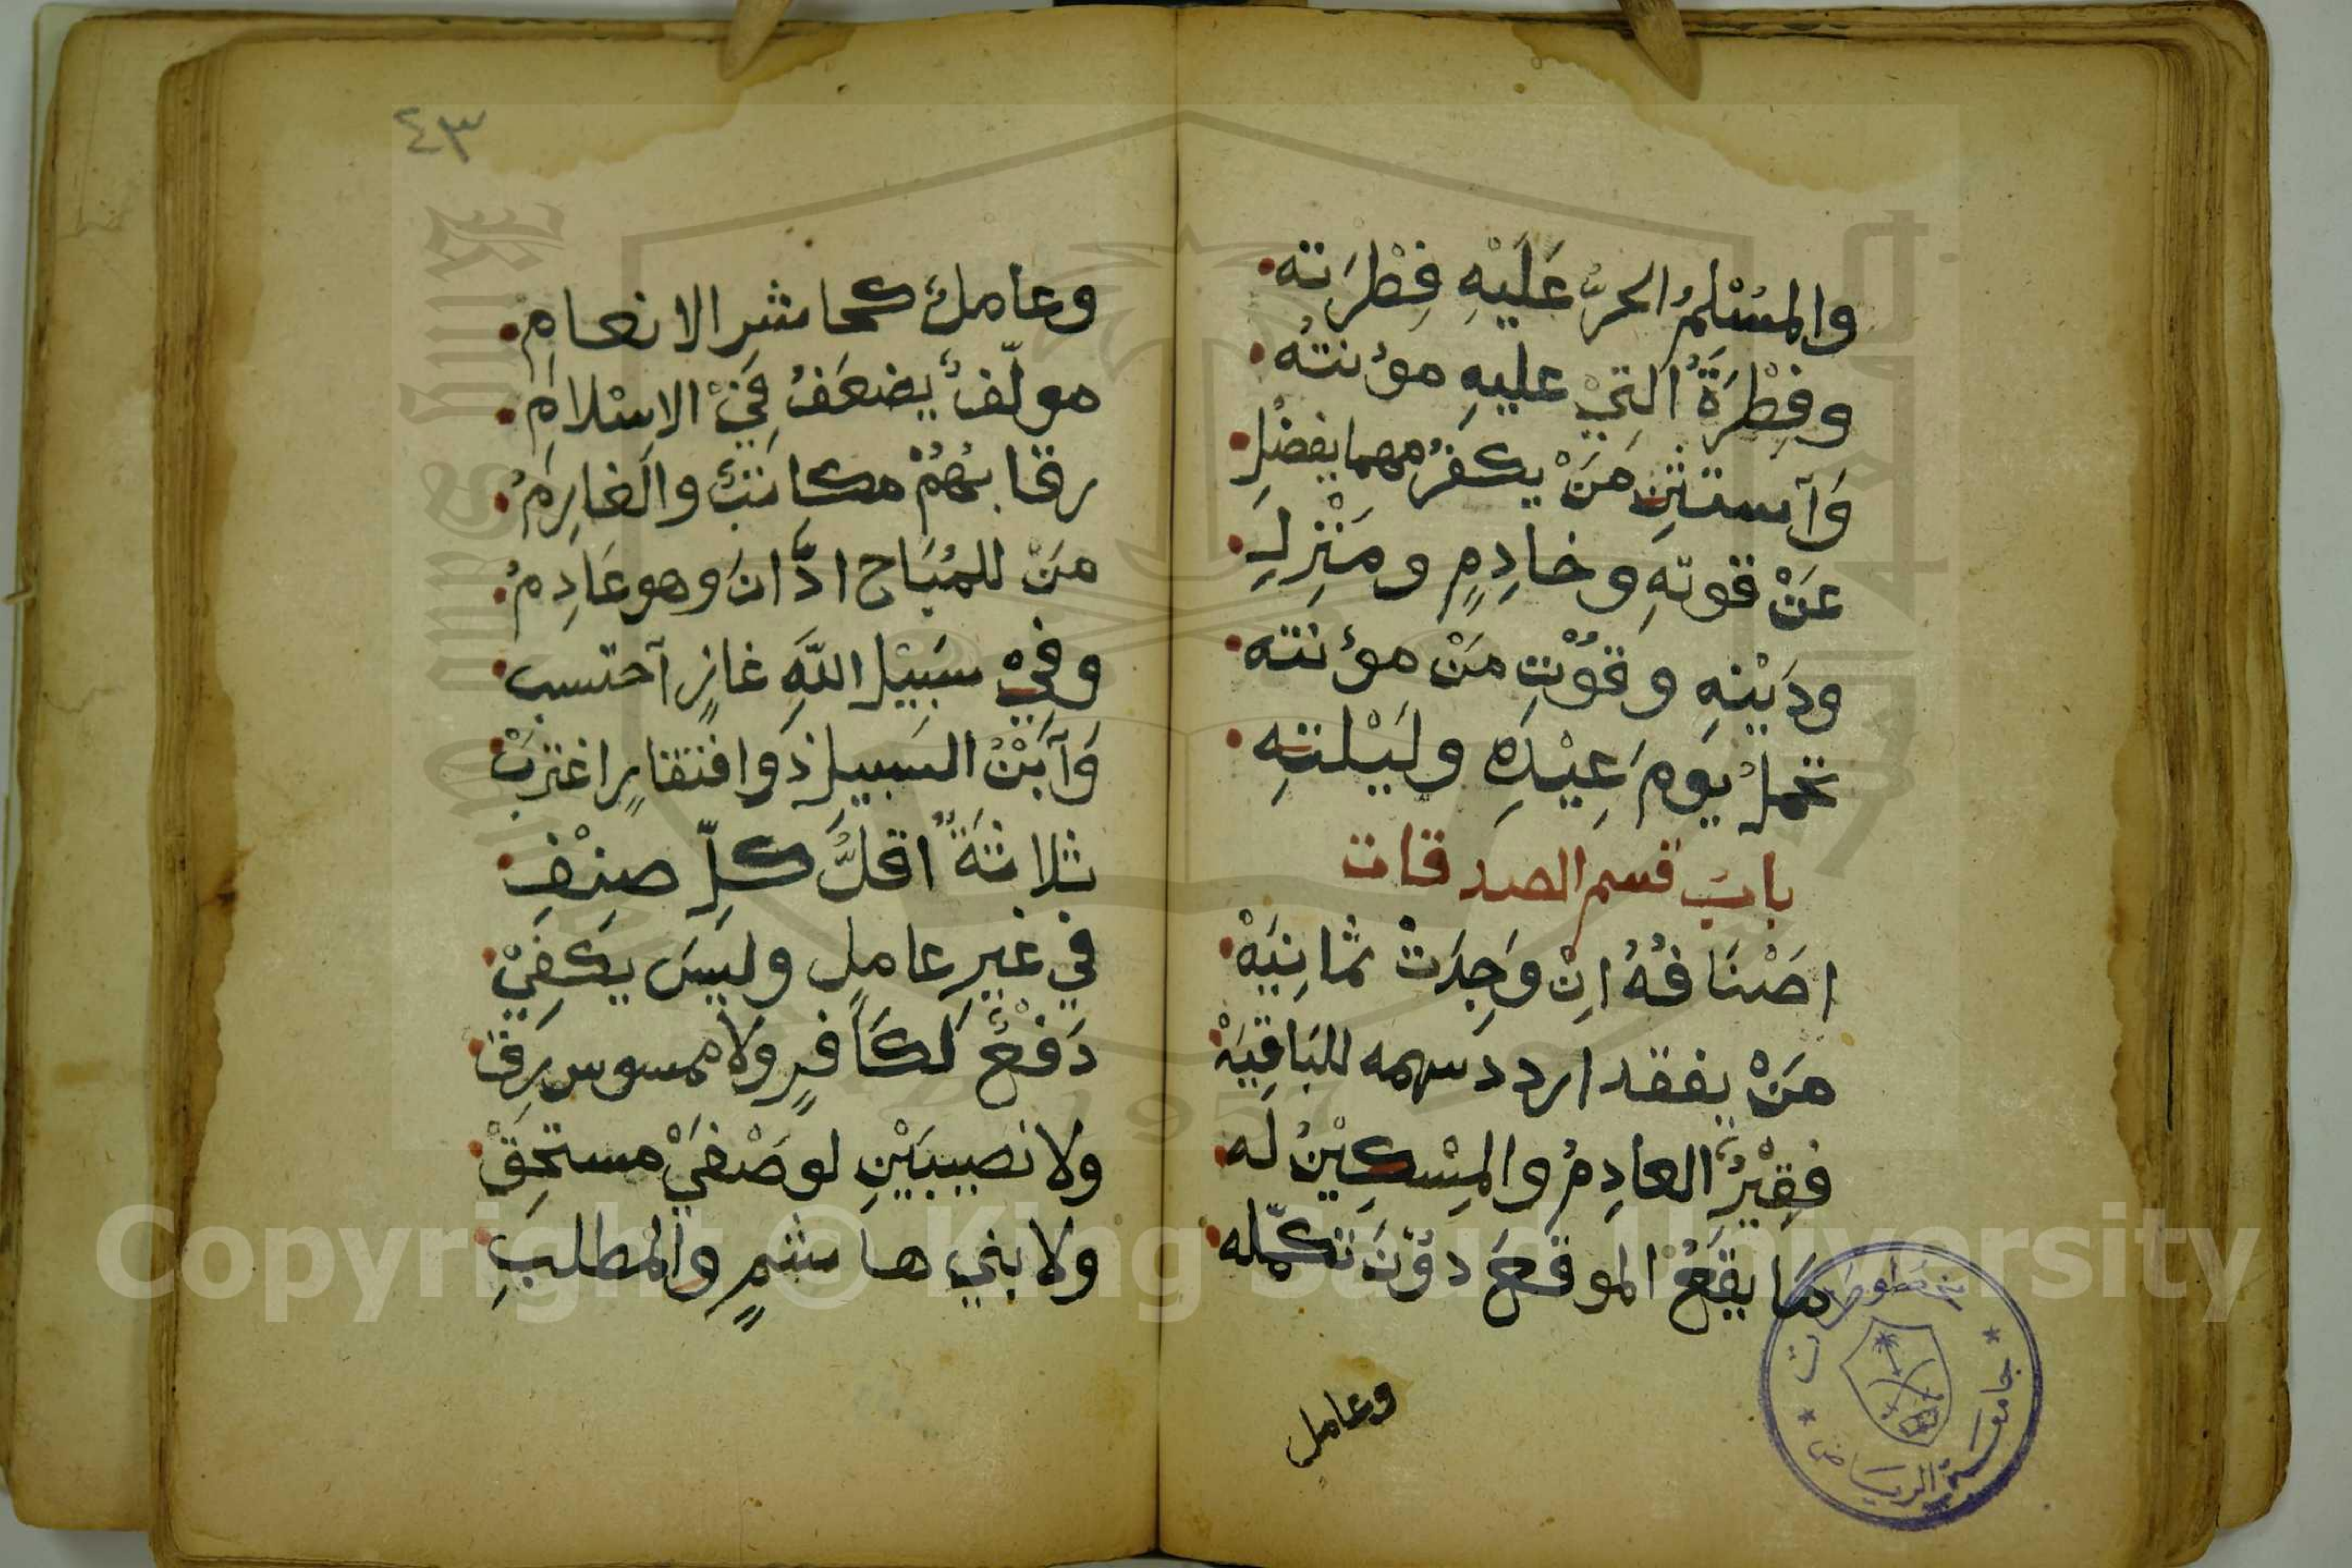 والمُسْلِمُ الحرُّ عَلَيْهِ فِطْرَته
وفِطْرَةُ التِيْ عليهِ مؤنتُه
وَآستثنِ مَنْ يكفرُ مهما يفضُلِ
عَنْ قوتهِ وخادِمٍ ومَنْزِلِ
ودَيْنِهِ وقُوْتِ مَنْ مؤنته
تحملُ يَومَ عِيْدِهِ ولَيْلتهِ
بابُ قسم الصدقات
اصْنَافُهُ انِ وُجِدَتْ ثمانِيَهْ
مَنْ يفقد اردد سهمه للبَاقِيَهْ
فقِيْرٌ العادِمُ والمِسْكِيْنُ لَه
مَا يَقَعُ الموقعَ دوْنَ تكمِّله
وعامل
٤٣
وعاملٌ كحاشر الانعامِ
مولّفٌ يضعَفُ فِيْ الاِسْلامِ
رقابُهُمْ مكاتبٌ والغارِمُ
مَنْ للمُبَاح ادَّانَ وهو عَادِمُ
وفِيْ سَبِيْلِ اللَّهِ غازٍ آحتسب
وَآبْنُ السَبِيلِ ذو افتقارٍ اغتربْ
ثلاثةٌ اقلُّ كلِّ صِنْفِ
في غيرِ عاملٍ وليسَ يكفِيْ
دَفْعٌ لكَافرٍ ولا ممسوس رِق
ولا نصيبَيْنِ لوصْفَيْ مستحِقْ
ولا بني هاشمٍ والمطلبِ
مخطوطات
جامعة الرياض
Copyright © King Saud University
1957